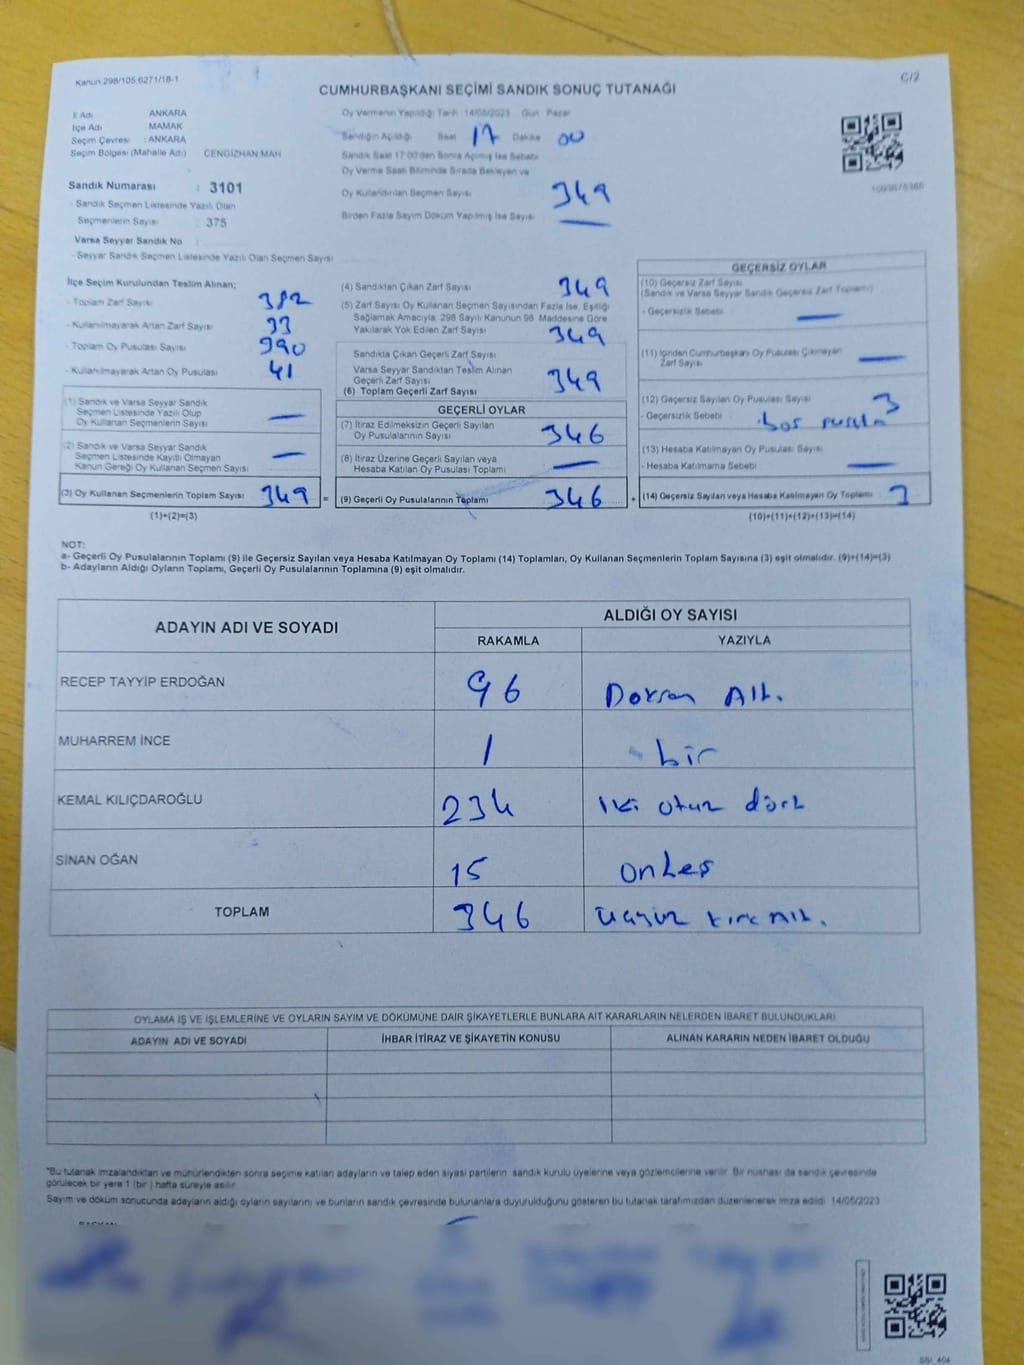 Kanun 298/105 6271/18-1
C/2
CUMHURBAŞKANI SEÇİMİ SANDIK SONUÇ TUTANAĞI
İl Adı ANKARA
İlçe Adı MAMAK
Seçim Çevresi : ANKARA
Seçim Bölgesi (Mahalle Adı) CENGİZHAN MAH
Sandık Numarası : 3101
- Sandık Seçmen Listesinde Yazılı Olan
Seçmenlerin Sayısı : 375
Varsa Seyyar Sandık No :
- Seyyar Sandık Seçmen Listesinde Yazılı Olan Seçmen Sayısı
Oy Vermenin Yapıldığı Tarih 14/05/2023 Gün Pazar
Sandığın Açıldığı Saat 17 Dakika 00
Sandık Saat 17:00'den Sonra Açılmış İse Sebebi
Oy Verme Saati Bitiminde Sırada Bekleyen ve
Oy Kullandırılan Seçmen Sayısı 349
Birden Fazla Sayım Döküm Yapılmış İse Sayısı —
İlçe Seçim Kurulundan Teslim Alınan;
- Toplam Zarf Sayısı 382
- Kullanılmayarak Artan Zarf Sayısı 33
- Toplam Oy Pusulası Sayısı 390
- Kullanılmayarak Artan Oy Pusulası 41
(1) Sandık ve Varsa Seyyar Sandık
Seçmen Listesinde Yazılı Olup
Oy Kullanan Seçmenlerin Sayısı —
(2) Sandık ve Varsa Seyyar Sandık
Seçmen Listesinde Kayıtlı Olmayan
Kanun Gereği Oy Kullanan Seçmen Sayısı —
(3) Oy Kullanan Seçmenlerin Toplam Sayısı 349 =
(1)+(2)=(3)
(4) Sandıktan Çıkan Zarf Sayısı 349
(5) Zarf Sayısı Oy Kullanan Seçmen Sayısından Fazla İse, Eşitliği
Sağlamak Amacıyla; 298 Sayılı Kanunun 98. Maddesine Göre
Yakılarak Yok Edilen Zarf Sayısı 349
Sandıkta Çıkan Geçerli Zarf Sayısı
Varsa Seyyar Sandıktan Teslim Alınan
Geçerli Zarf Sayısı 349
(6) Toplam Geçerli Zarf Sayısı
GEÇERLİ OYLAR
(7) İtiraz Edilmeksizin Geçerli Sayılan
Oy Pusulalarının Sayısı 346
(8) İtiraz Üzerine Geçerli Sayılan veya
Hesaba Katılan Oy Pusulası Toplamı —
(9) Geçerli Oy Pusulalarının Toplamı 346 +
GEÇERSİZ OYLAR
(10) Geçersiz Zarf Sayısı
(Sandık ve Varsa Seyyar Sandık Geçersiz Zarf Toplamı)
- Geçersizlik Sebebi —
(11) İçinden Cumhurbaşkanı Oy Pusulası Çıkmayan
Zarf Sayısı —
(12) Geçersiz Sayılan Oy Pusulası Sayısı 3
- Geçersizlik Sebebi boş pusula
(13) Hesaba Katılmayan Oy Pusulası Sayısı
- Hesaba Katılmama Sebebi —
(14) Geçersiz Sayılan veya Hesaba Katılmayan Oy Toplamı 3
(10)+(11)+(12)+(13)=(14)
NOT:
a- Geçerli Oy Pusulalarının Toplamı (9) ile Geçersiz Sayılan veya Hesaba Katılmayan Oy Toplamı (14) Toplamları, Oy Kullanan Seçmenlerin Toplam Sayısına (3) eşit olmalıdır. (9)+(14)=(3)
b- Adayların Aldığı Oyların Toplamı, Geçerli Oy Pusulalarının Toplamına (9) eşit olmalıdır.
ADAYIN ADI VE SOYADI
ALDIĞI OY SAYISI
RAKAMLA YAZIYLA
RECEP TAYYİP ERDOĞAN 96 Doksan Altı
MUHARREM İNCE 1 bir
KEMAL KILIÇDAROĞLU 234 iki otuz dört
SİNAN OĞAN 15 onbeş
TOPLAM 346 üçyüz kırk Altı
OYLAMA İŞ VE İŞLEMLERİNE VE OYLARIN SAYIM VE DÖKÜMÜNE DAİR ŞİKAYETLERLE BUNLARA AİT KARARLARIN NELERDEN İBARET BULUNDUKLARI
ADAYIN ADI VE SOYADI İHBAR İTİRAZ VE ŞİKAYETİN KONUSU ALINAN KARARIN NEDEN İBARET OLDUĞU
"Bu tutanak imzalandıktan ve mühürlendikten sonra seçime katılan adayların ve talep eden siyasi partilerin sandık kurulu üyelerine veya gözlemcilerine verilir. Bir nüshası da sandık çevresinde
görülecek bir yere 1 (bir) hafta süreyle asılır.
Sayım ve döküm sonucunda adayların aldığı oyların sayılarını ve bunların sandık çevresinde bulunanlara duyurulduğunu gösteren bu tutanak tarafımızdan düzenlenerek imza edildi. 14/05/2023